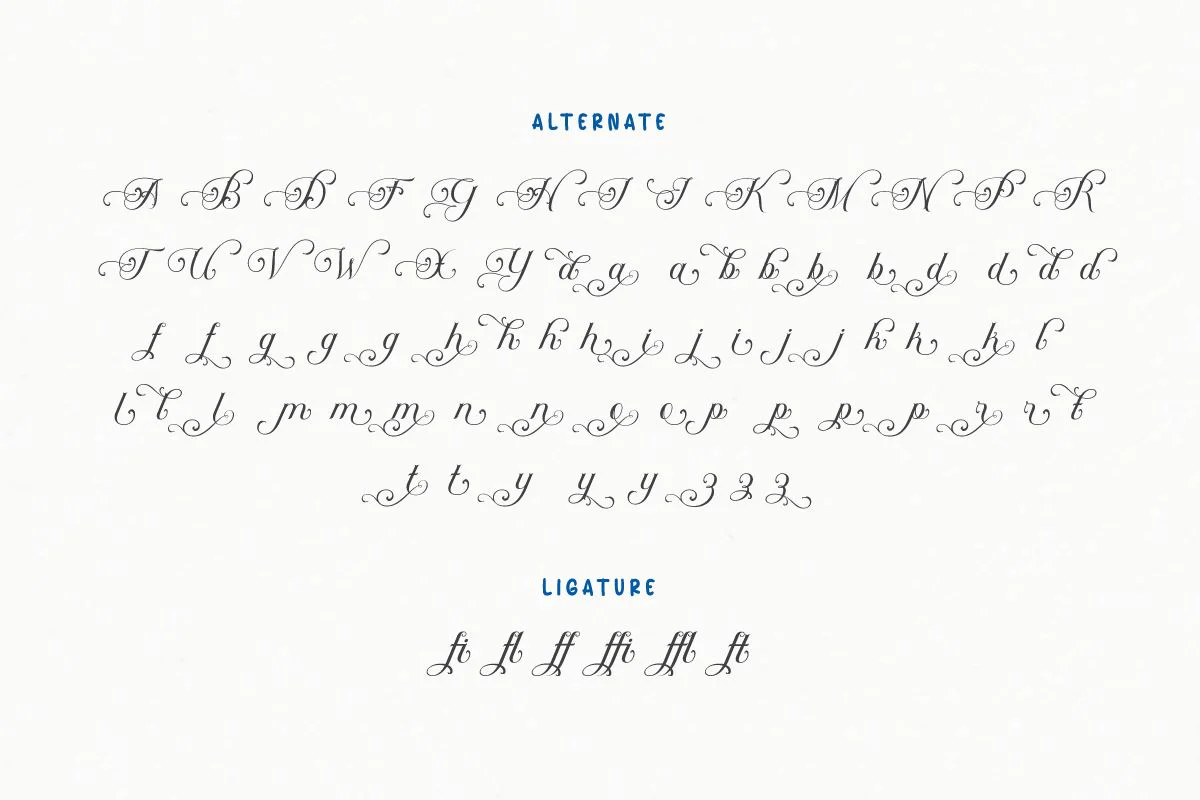 ALTERNATE
A B D F G H I J K M N P R
T U V W X Y a a a b b b b d d d d
f f g g g h h h h i j i j j k k k l
l l l m m m n n o o p p p p r r t
t t y y y z z z
LIGATURE
fi fl ff ffi ffl ft